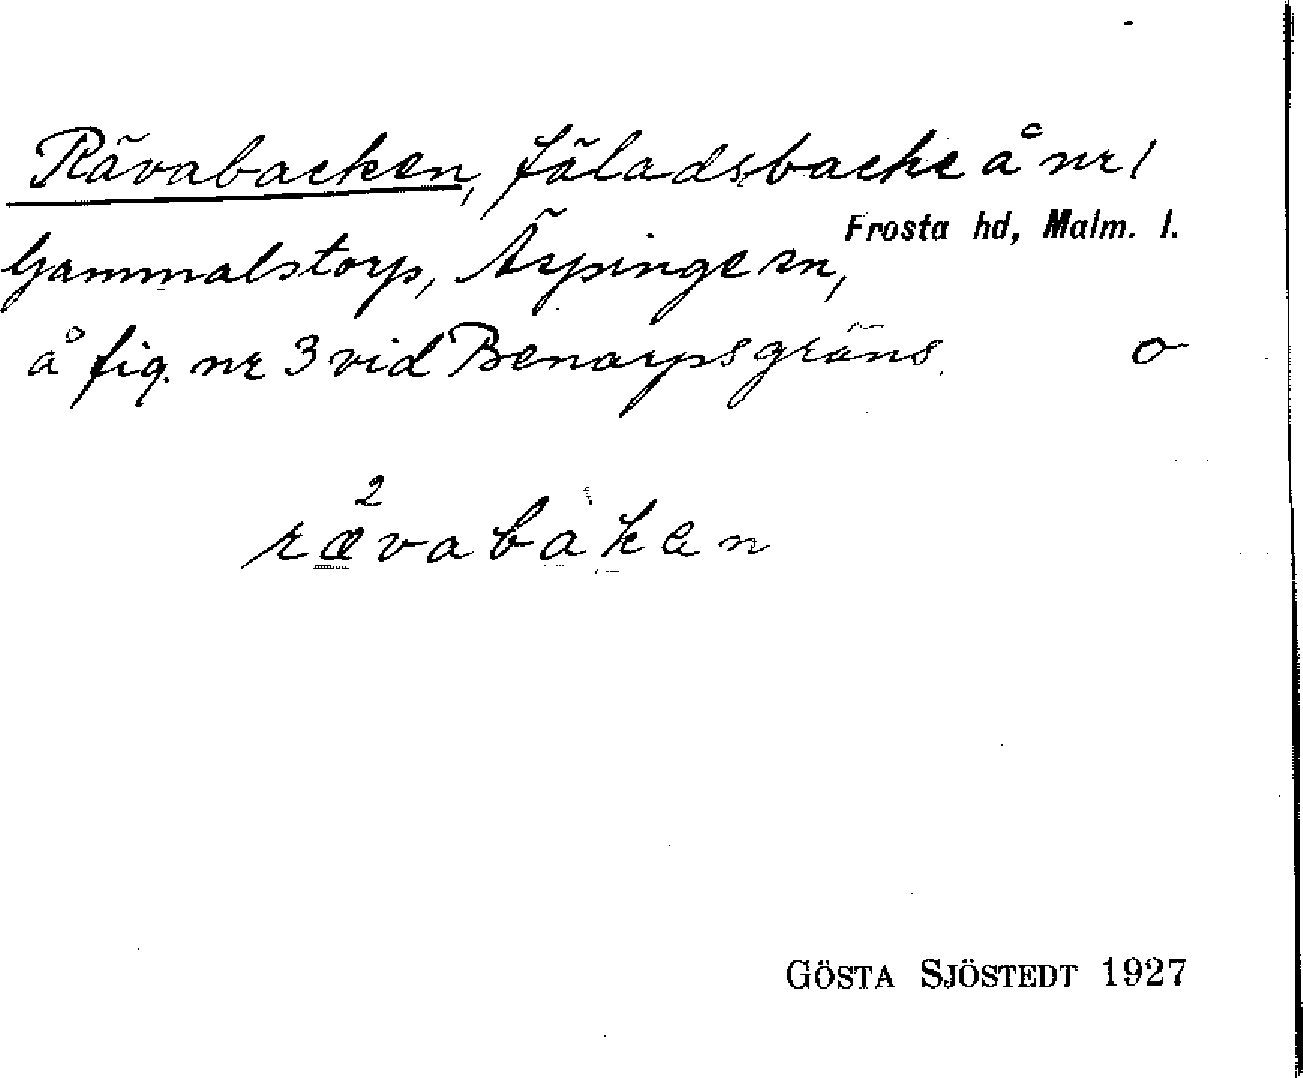 Rävabacken, fäladsbacke å nr 1
Frosta hd, Malm. l.
Gammalstorp, Äspinge sn,
å fig. nr 3 vid Benarps gräns. o
2
rævabakan
GÖSTA SJÖSTEDT 1927